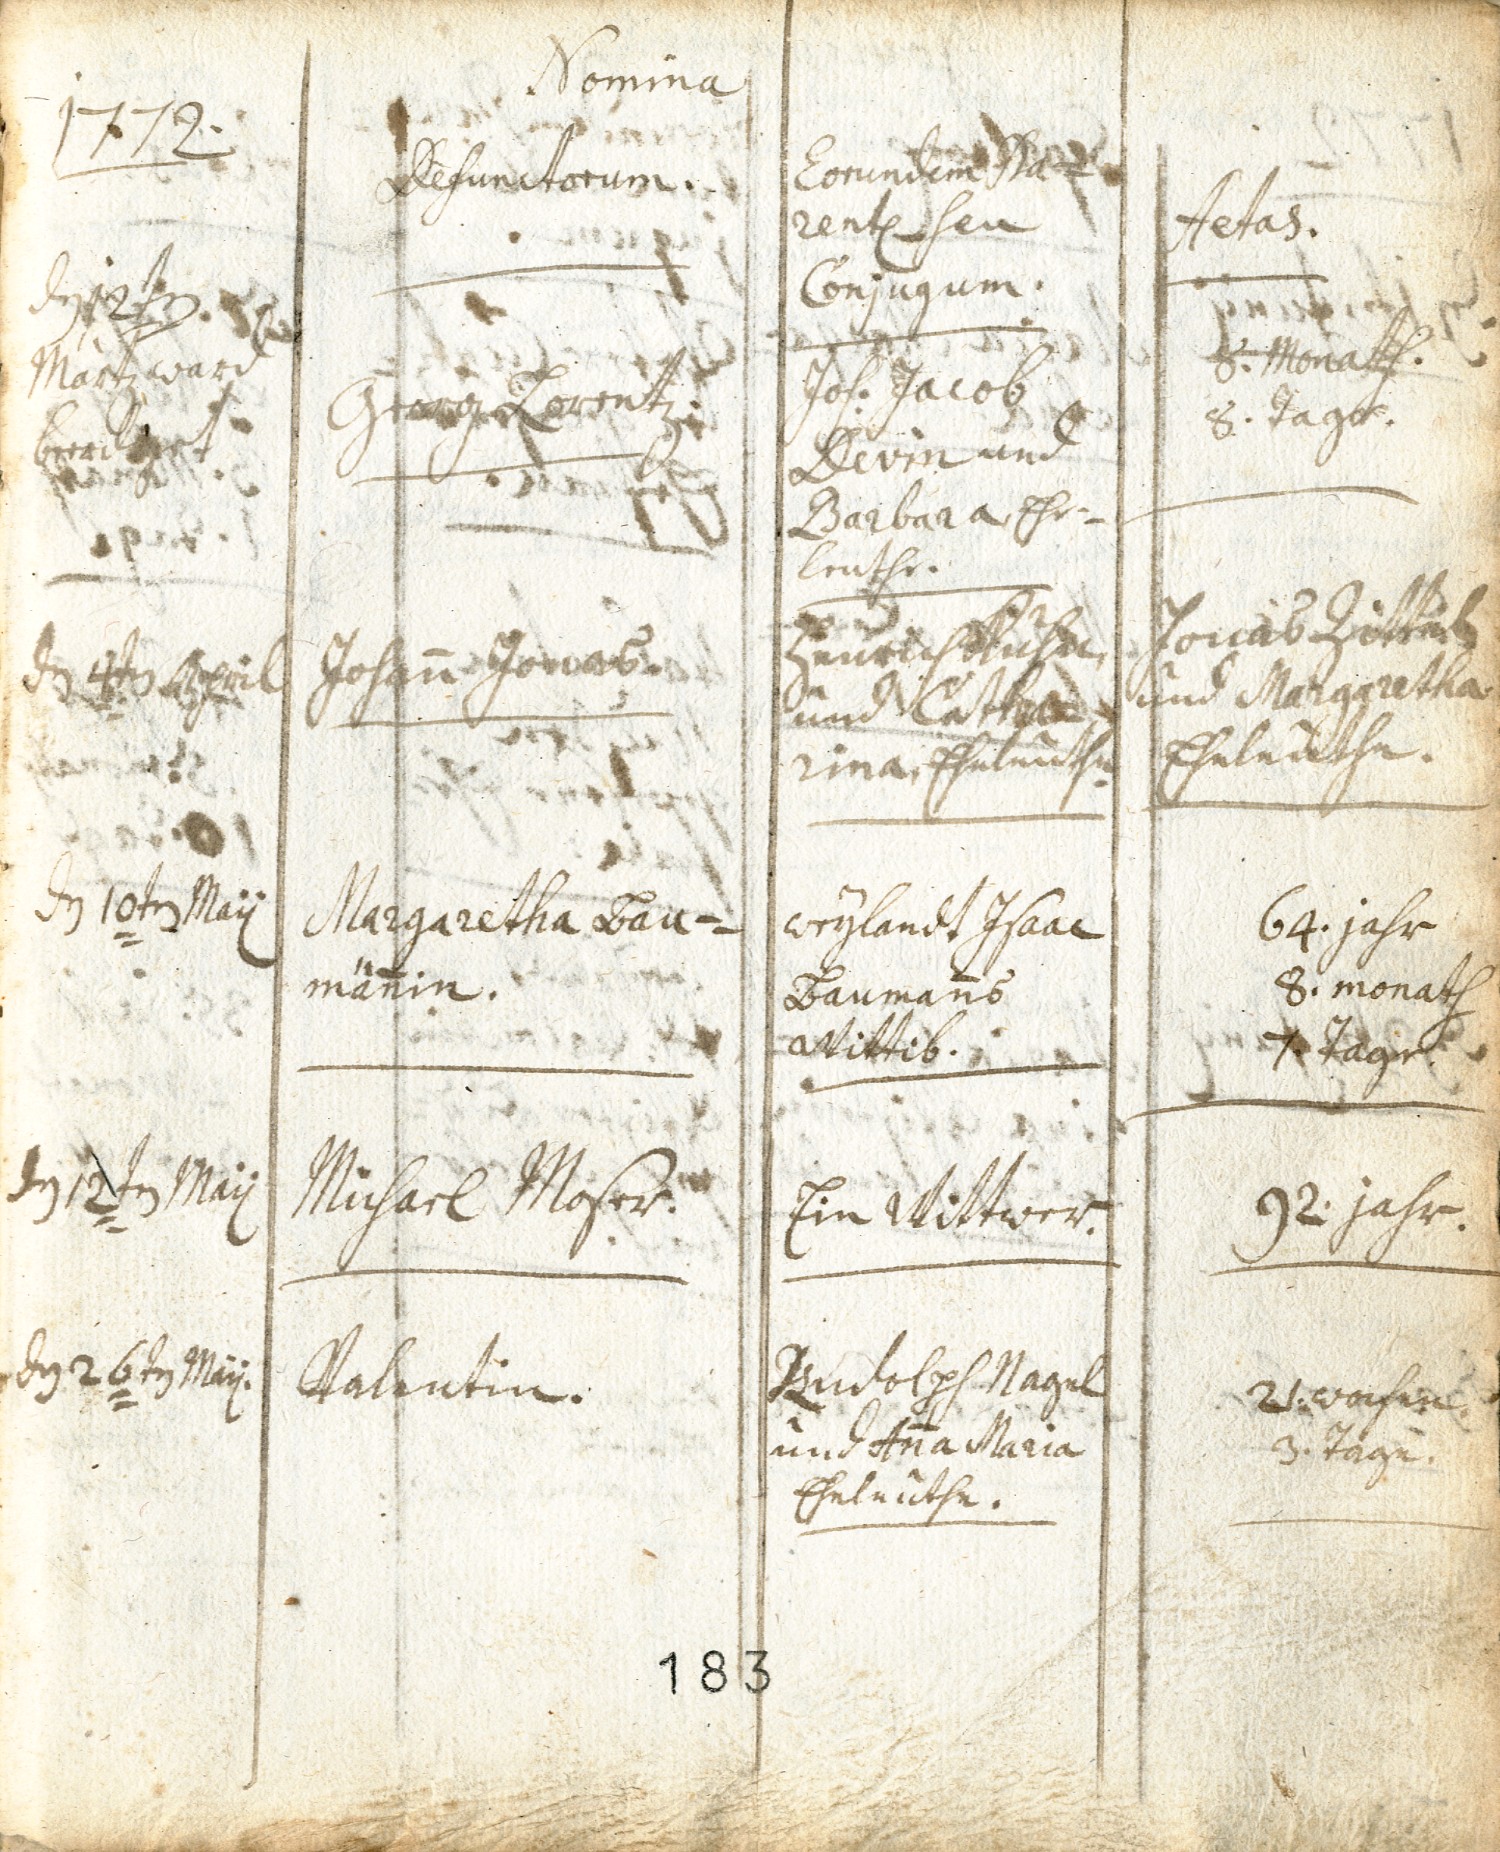 1772.
Nomina
Defunctorum.
Eorundem Pa-
rent seu
Conjugum.
Aetas.
dn 12tn.
Martz ward
beerdiget
Georg Lorentz.
Joh. Jacob
Devin und
Barbara, Ehe-
leuthe.
8. Monath.
8. Tage.
dn 4tn April
Johann Jonas.
Henrich
und Catha-
rina, Eheleuthe
Jonas
und Margaretha
Eheleuthe.
dn 10tn Maÿ
Margaretha Bau-
männin.
weÿlandt Isaac
Baumanns
Wittib.
64. jahr
8. monath
7. Tage.
dn 12tn Maÿ
Michael Moser.
Ein Wittwer.
92. jahr.
dn 26tn Maÿ.
Valentin.
Rudolph Nagel
und Anna Maria
Eheleuthe.
21. wochen
3. Tage.
183